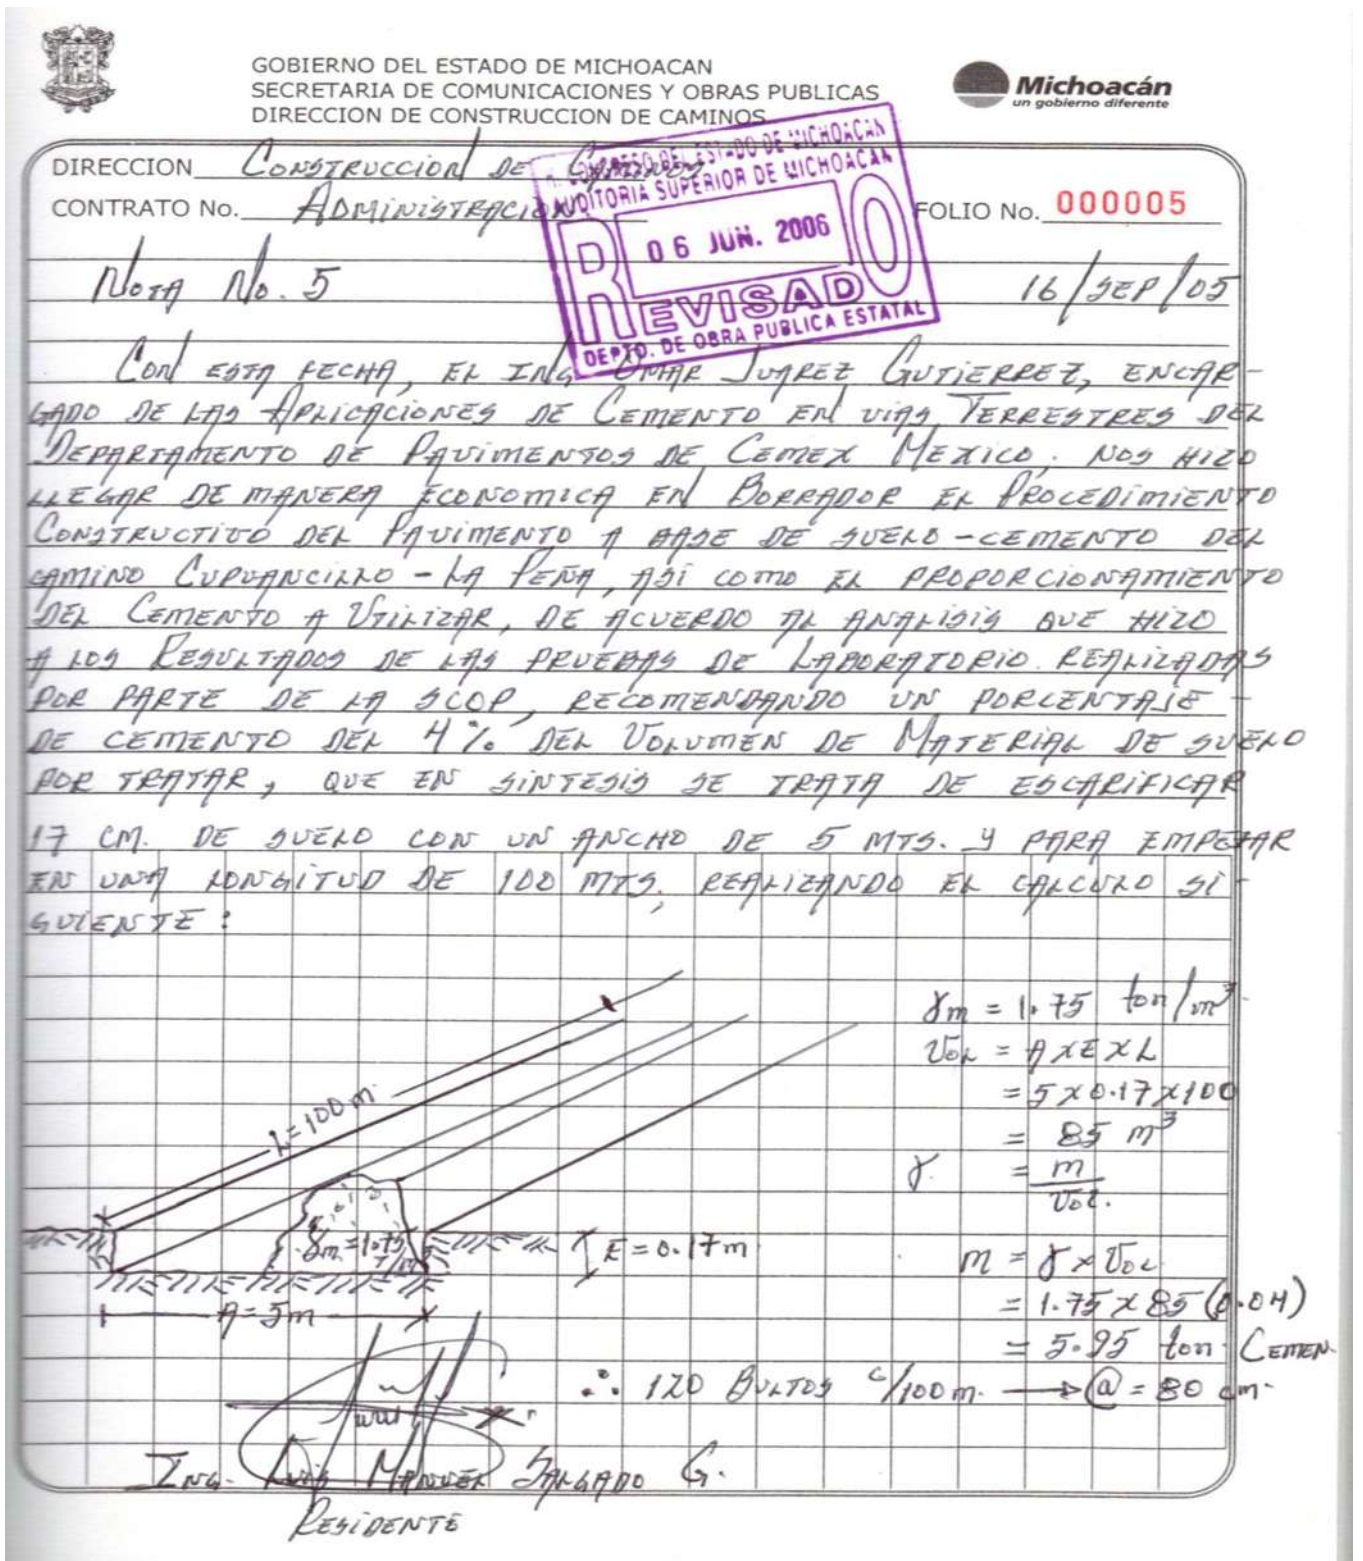 GOBIERNO DEL ESTADO DE MICHOACAN
SECRETARIA DE COMUNICACIONES Y OBRAS PUBLICAS
DIRECCION DE CONSTRUCCION DE CAMINOS
Michoacán
un gobierno diferente
DIRECCION CONSTRUCCION DE CAMINOS
CONTRATO No. ADMINISTRACION
FOLIO No. 000005
H. CONGRESO DEL ESTADO DE MICHOACAN
AUDITORIA SUPERIOR DE MICHOACAN
06 JUN. 2006
REVISADO
DEPTO. DE OBRA PUBLICA ESTATAL
NOTA No. 5
16/SEP/05
CON ESTA FECHA, EL ING OMAR JUAREZ GUTIERREZ, ENCAR-
GADO DE LAS APLICACIONES DE CEMENTO EN VIAS TERRESTRES DEL
DEPARTAMENTO DE PAVIMENTOS DE CEMEX MEXICO, NOS HIZO
LLEGAR DE MANERA ECONOMICA EN BORRADOR EL PROCEDIMIENTO
CONSTRUCTIVO DEL PAVIMENTO A BASE DE SUELO-CEMENTO DEL
CAMINO CUPUANCILLO - LA PEÑA, ASI COMO EL PROPORCIONAMIENTO
DEL CEMENTO A UTILIZAR, DE ACUERDO AL ANALISIS QUE HIZO
A LOS RESULTADOS DE LAS PRUEBAS DE LABORATORIO REALIZADAS
POR PARTE DE LA SCOP, RECOMENDANDO UN PORCENTAJE -
DE CEMENTO DEL 4% DEL VOLUMEN DE MATERIAL DE SUELO
POR TRATAR, QUE EN SINTESIS SE TRATA DE ESCARIFICAR
17 CM. DE SUELO CON UN ANCHO DE 5 MTS. Y PARA EMPEZAR
EN UNA LONGITUD DE 100 MTS, REALIZANDO EL CALCULO SI-
GUIENTE:
γm = 1.75 ton/m³
VOL = A x E x L
= 5 x 0.17 x 100
= 85 m³
γ = m
VOL.
L = 100 m
γm = 1.75 T/m³
E = 0.17 m
A = 5m
m = γ x VOL
= 1.75 x 85 (0.04)
= 5.95 ton CEMEN.
∴ 120 BULTOS c/100 m. → @ = 80 cm.
ING. LUIS MANUEL SALGADO G.
RESIDENTE